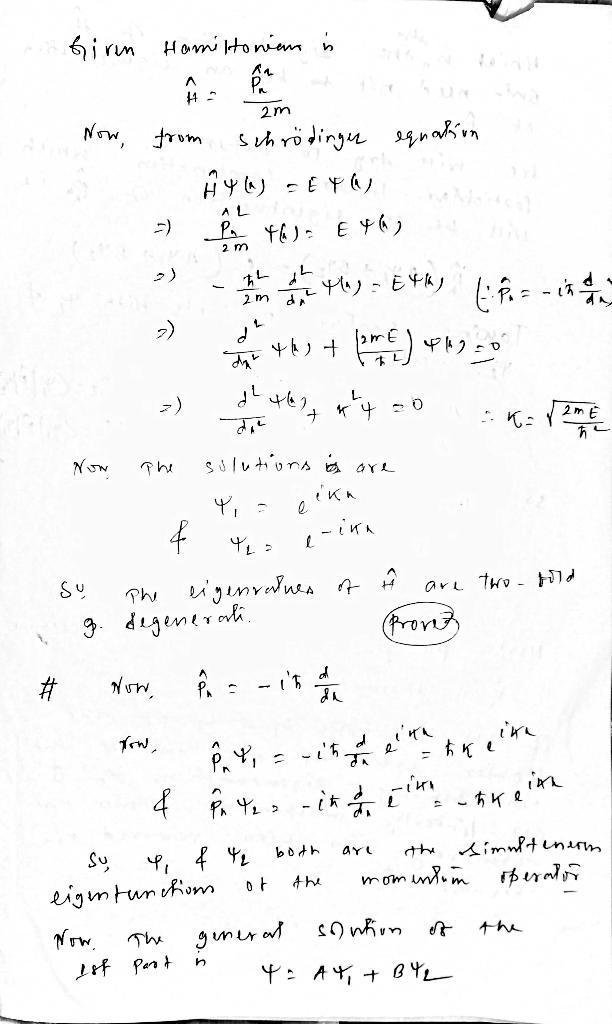 Given Hamiltonian is
Ĥ = p̂ₓ² / 2m
Now, from schrödinger equation
Ĥ ψ(x) = E ψ(x)
=) p̂ₓ² / 2m ψ(x) = E ψ(x)
=) - ħ² / 2m d² / dx² ψ(x) = E ψ(x) [∵ p̂ₓ = -iħ d / dx
=) d² / dx² ψ(x) + (2mE / ħ²) ψ(x) = 0
=) d² / dx² ψ(x) + k² ψ = 0 ∴ k = √(2mE / ħ²)
Now, The solutions are
ψ₁ = e^{ikx}
& ψ₂ = e^{-ikx}
So The eigenvalues of Ĥ are two-fold
degenerate. (Proved)
# Now, p̂ₓ = -iħ d / dx
Now, p̂ₓ ψ₁ = -iħ d / dx e^{ikx} = ħk e^{ikx}
& p̂ₓ ψ₂ = -iħ d / dx e^{-ikx} = -ħk e^{ikx}
So, ψ₁ & ψ₂ both are the simulteneous
eigenfunctions of the momentum operator
Now, The general solution of the
1st part is ψ = Aψ₁ + Bψ₂